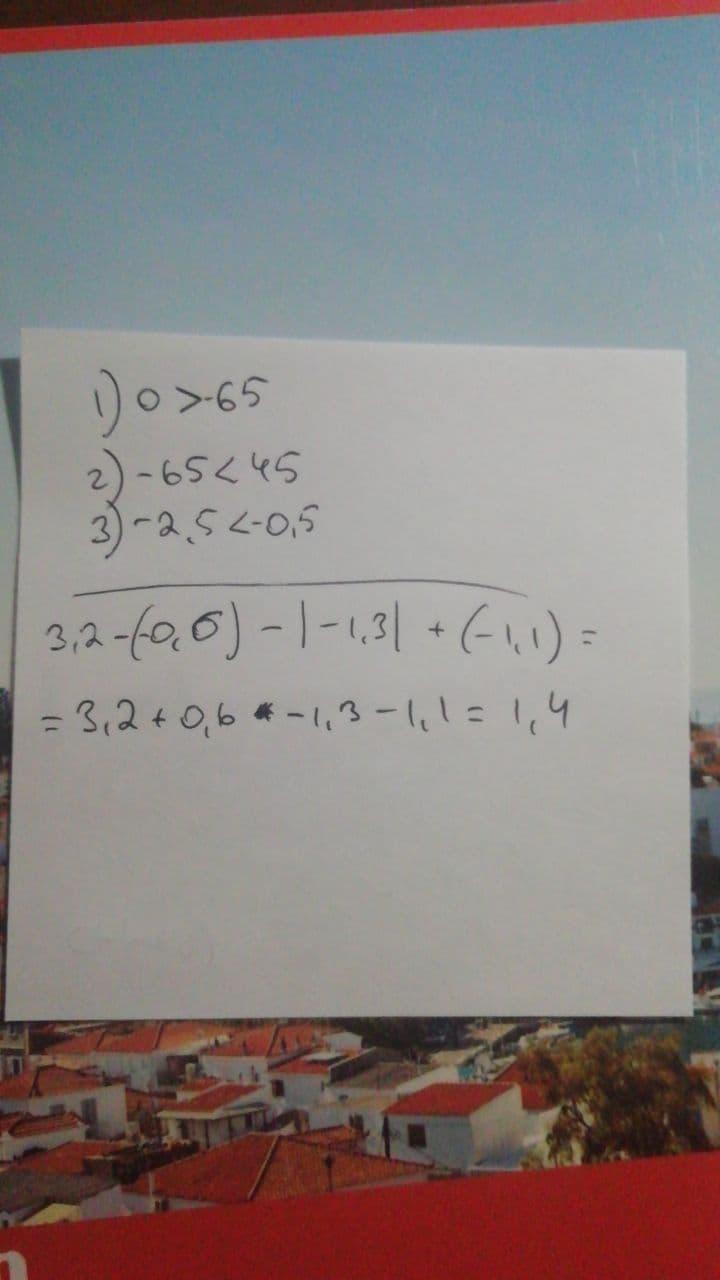 1) 0 >-65
2) -65<45
3) -2,5<-0,5
3,2-(-0,6) - |-1,3| + (-1,1) =
= 3,2 + 0,6 - 1,3 - 1,1 = 1,4